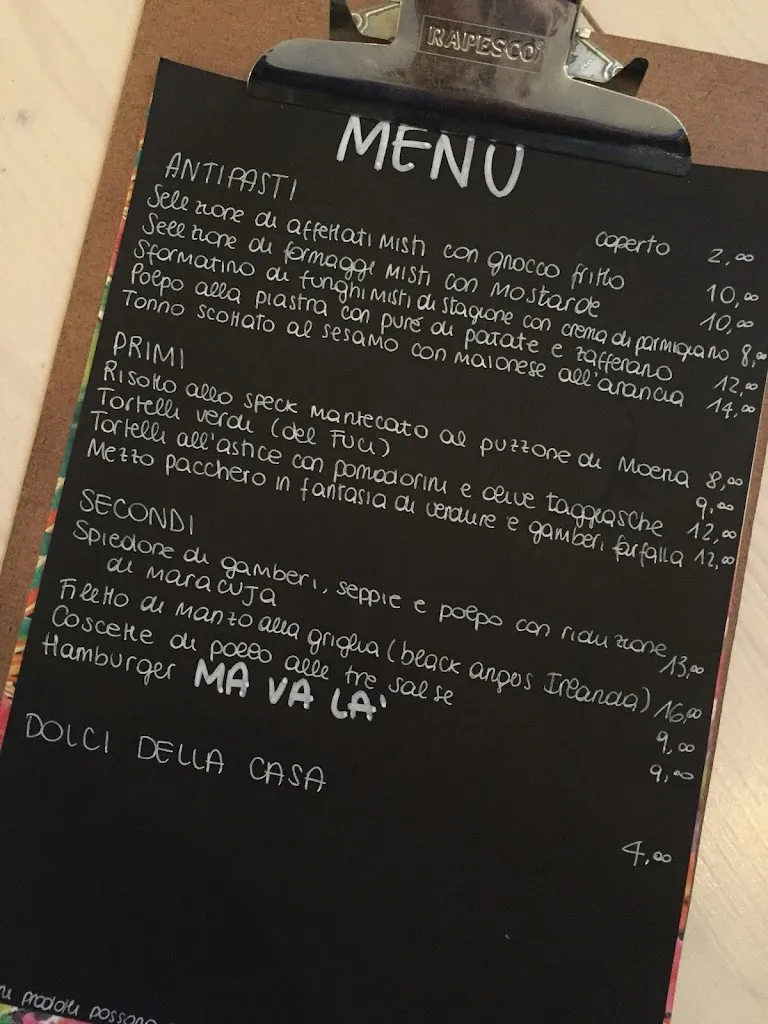 RAPESCO
MENÙ
ANTIPASTI
coperto 2,00
Selezione di affettati misti con gnocco fritto 10,00
Selezione di formaggi misti con mostarde 10,00
Sformatino di funghi misti di stagione con crema di parmigiano 8,00
Polpo alla piastra con purè di patate e zafferano 12,00
Tonno scottato al sesamo con maionese all'arancia 14,00
PRIMI
Risotto allo speck mantecato al puzzone di Moena 8,00
Tortelli verdi (del Fuci) 9,00
Tortelli all'astice con pomodorini e olive taggiasche 12,00
Mezzo pacchero in fantasia di verdure e gamberi farfalla 12,00
SECONDI
Spiedone di gamberi, seppie e polpo con riduzione
di maracuja 13,00
Filetto di manzo alla griglia (black angos Irlanda) 16,00
Coscette di pollo alle tre salse 9,00
Hamburger MA VA LA' 9,00
DOLCI DELLA CASA 4,00
prodotti possono